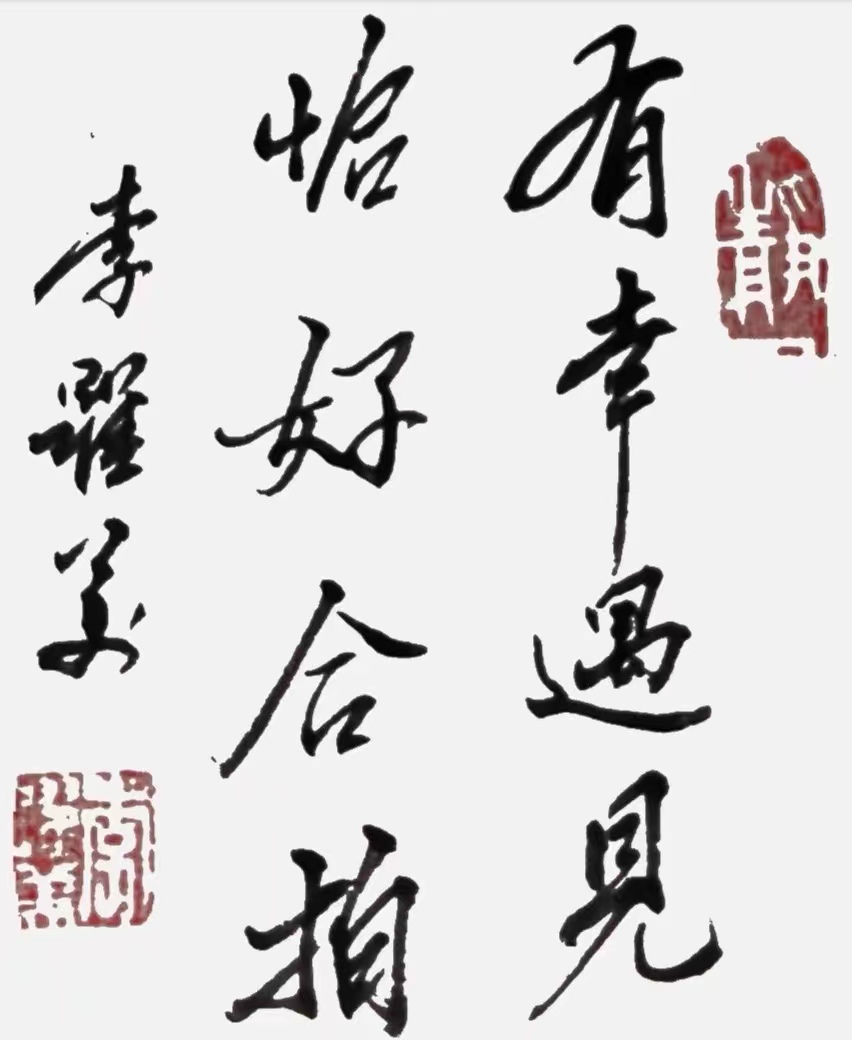 有幸遇見
恰好合拍
李